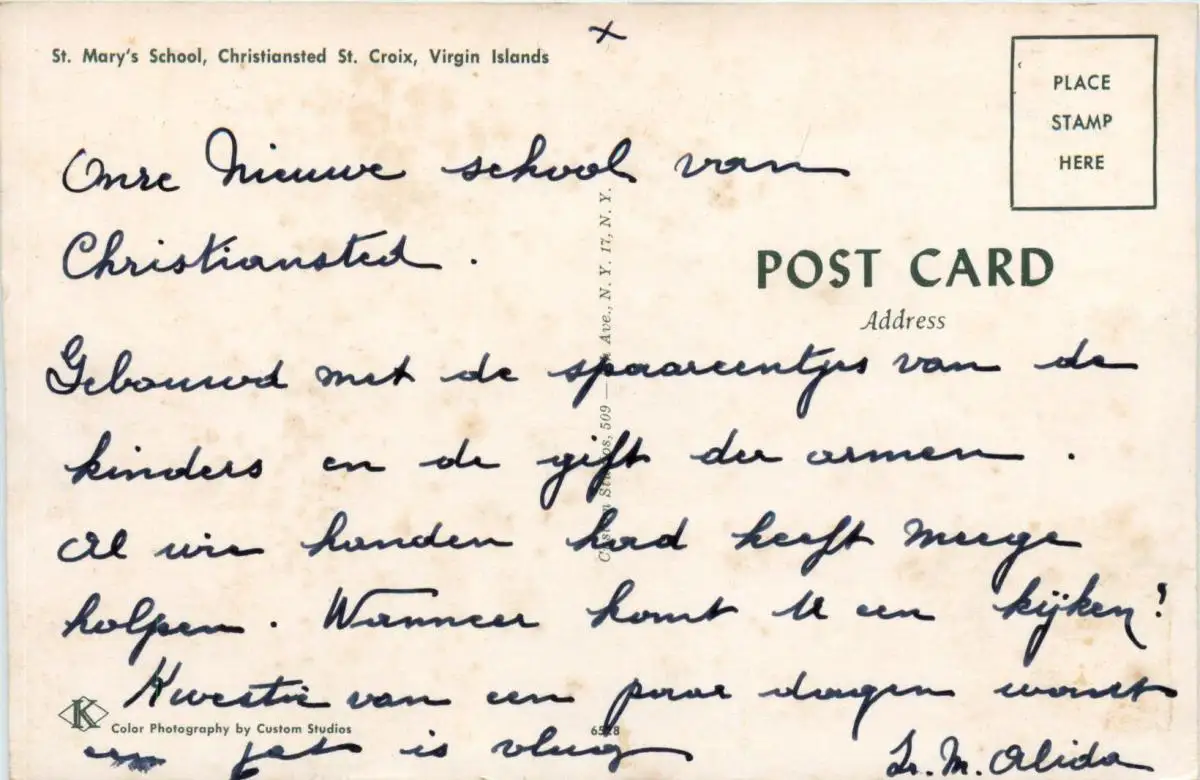 St. Mary's School, Christiansted St. Croix, Virgin Islands
x
PLACE
STAMP
HERE
Onze Nieuwe school van
Christiansted.
POST CARD
Address
Gebouwd met de spaarcentjes van de
kinders en de gift der armen.
Al wie handen had heeft meege
holpen. Wanneer komt U een kijken?
Kwestie van een paar dagen want
een jet is vlug
Sr. M. Alida
K
Color Photography by Custom Studios
6528
Custom Studios, 509 Ave., N. Y. 17, N. Y.